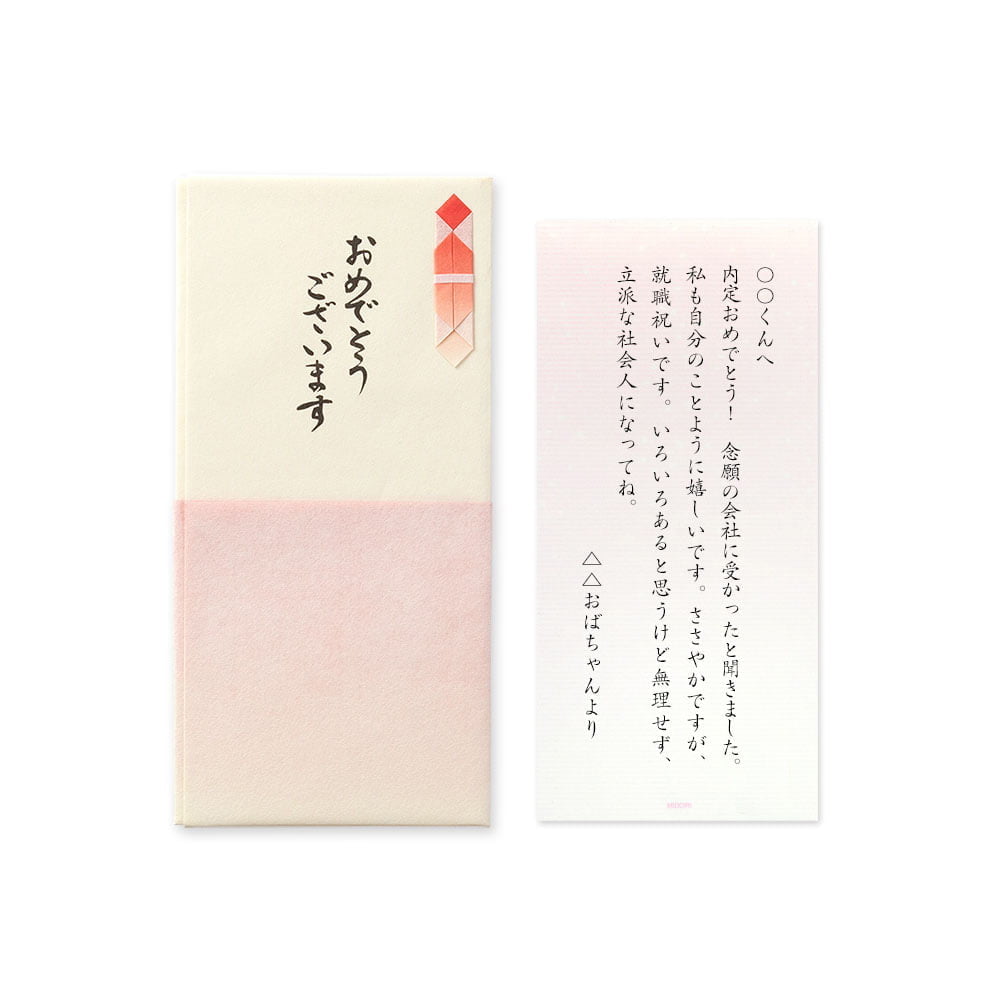 おめでとう
ございます
〇〇くんへ
内定おめでとう！　念願の会社に受かったと聞きました。
私も自分のことように嬉しいです。ささやかですが、
就職祝いです。いろいろあると思うけど無理せず、
立派な社会人になってね。
△△おばちゃんより